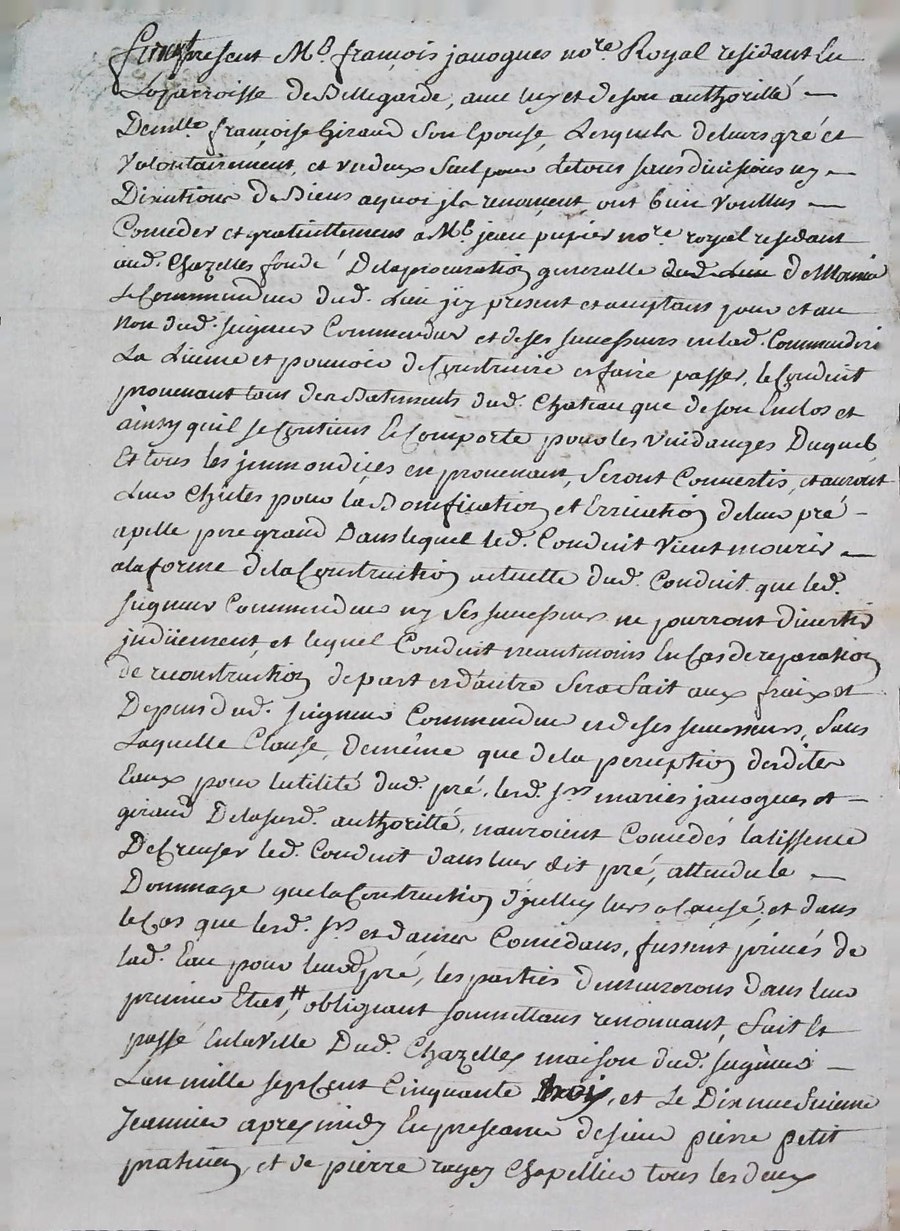 furent present Me françois janogues nore Royal residant En
La parroisse de Bellegarde, avec luy et de son authoritté
Demlle françoise Giraud Son Epouse, Lesquels de leurs gré et
Volontairement, et un deux Seul pour de tous sans divisions ny
Discution de Biens a quoi jls renoncent, ont bien Voullus
Conceder et gratuittement a Me jean pupier nore royal residant
aud. Chazelles fondé De la procuration generalle de
Le Commandeur dud. Lieu jcy present et acceptant pour et au
Non dud. seigneur Commandeur et de ses successeurs en lad. Commanderie
La Licence et pouvoir de Construire et faire passer, le Conduit
provenant tant des Batiments dud. Chateau que de son Enclos et
ainsy quil se Contient Et Comporte pour les Vuidanges Duquel
Et tous les jmmondices en provenant, Seront Convertis, et auront
Leur Chûtes pour la Bonification et Errication de leur pré
apellé pré grand Dans lequel led. Conduit Vient mourir
a la forme de la Construction actuelle dud. Conduit que led.
seigneur Commandeur ny Ses successeurs ne pourront divertir
judüement, et lequel Conduit neantmoins En Cas de reparation
de recontruction de part et d'autre Sera fait aux fraix et
Depens dud. seigneur Commandeur et de ses successeurs, Sans
Laquelle Clause, de même que de la perception desdites
Eaux pour lutilité dud. pré, lesd. srs mariés janogues et
giraud De la susd. authoritté, nauroient Concedés la lissence
De Creuser led. Conduit dans leur dit pré, attendu le
Dommage que la Contruction d'jcelluy leurs a Causé, et dans
le Cas que lesd. srs et dames Concedans, fussent privés de
lad. Eau pour leurd pré, les parties demeurerons dans leur
premier Etat, obligeant soumettans renonceant, fait Et
passé En la Ville Dud. Chazelles maison dud. seigneur
Lan mille sept Cent Cinquante trois, et Le Dix neuvieme
Jeanvier apres midy En presance de sieur pierre petit
praticien, et de pierre Chapellier tous les deux